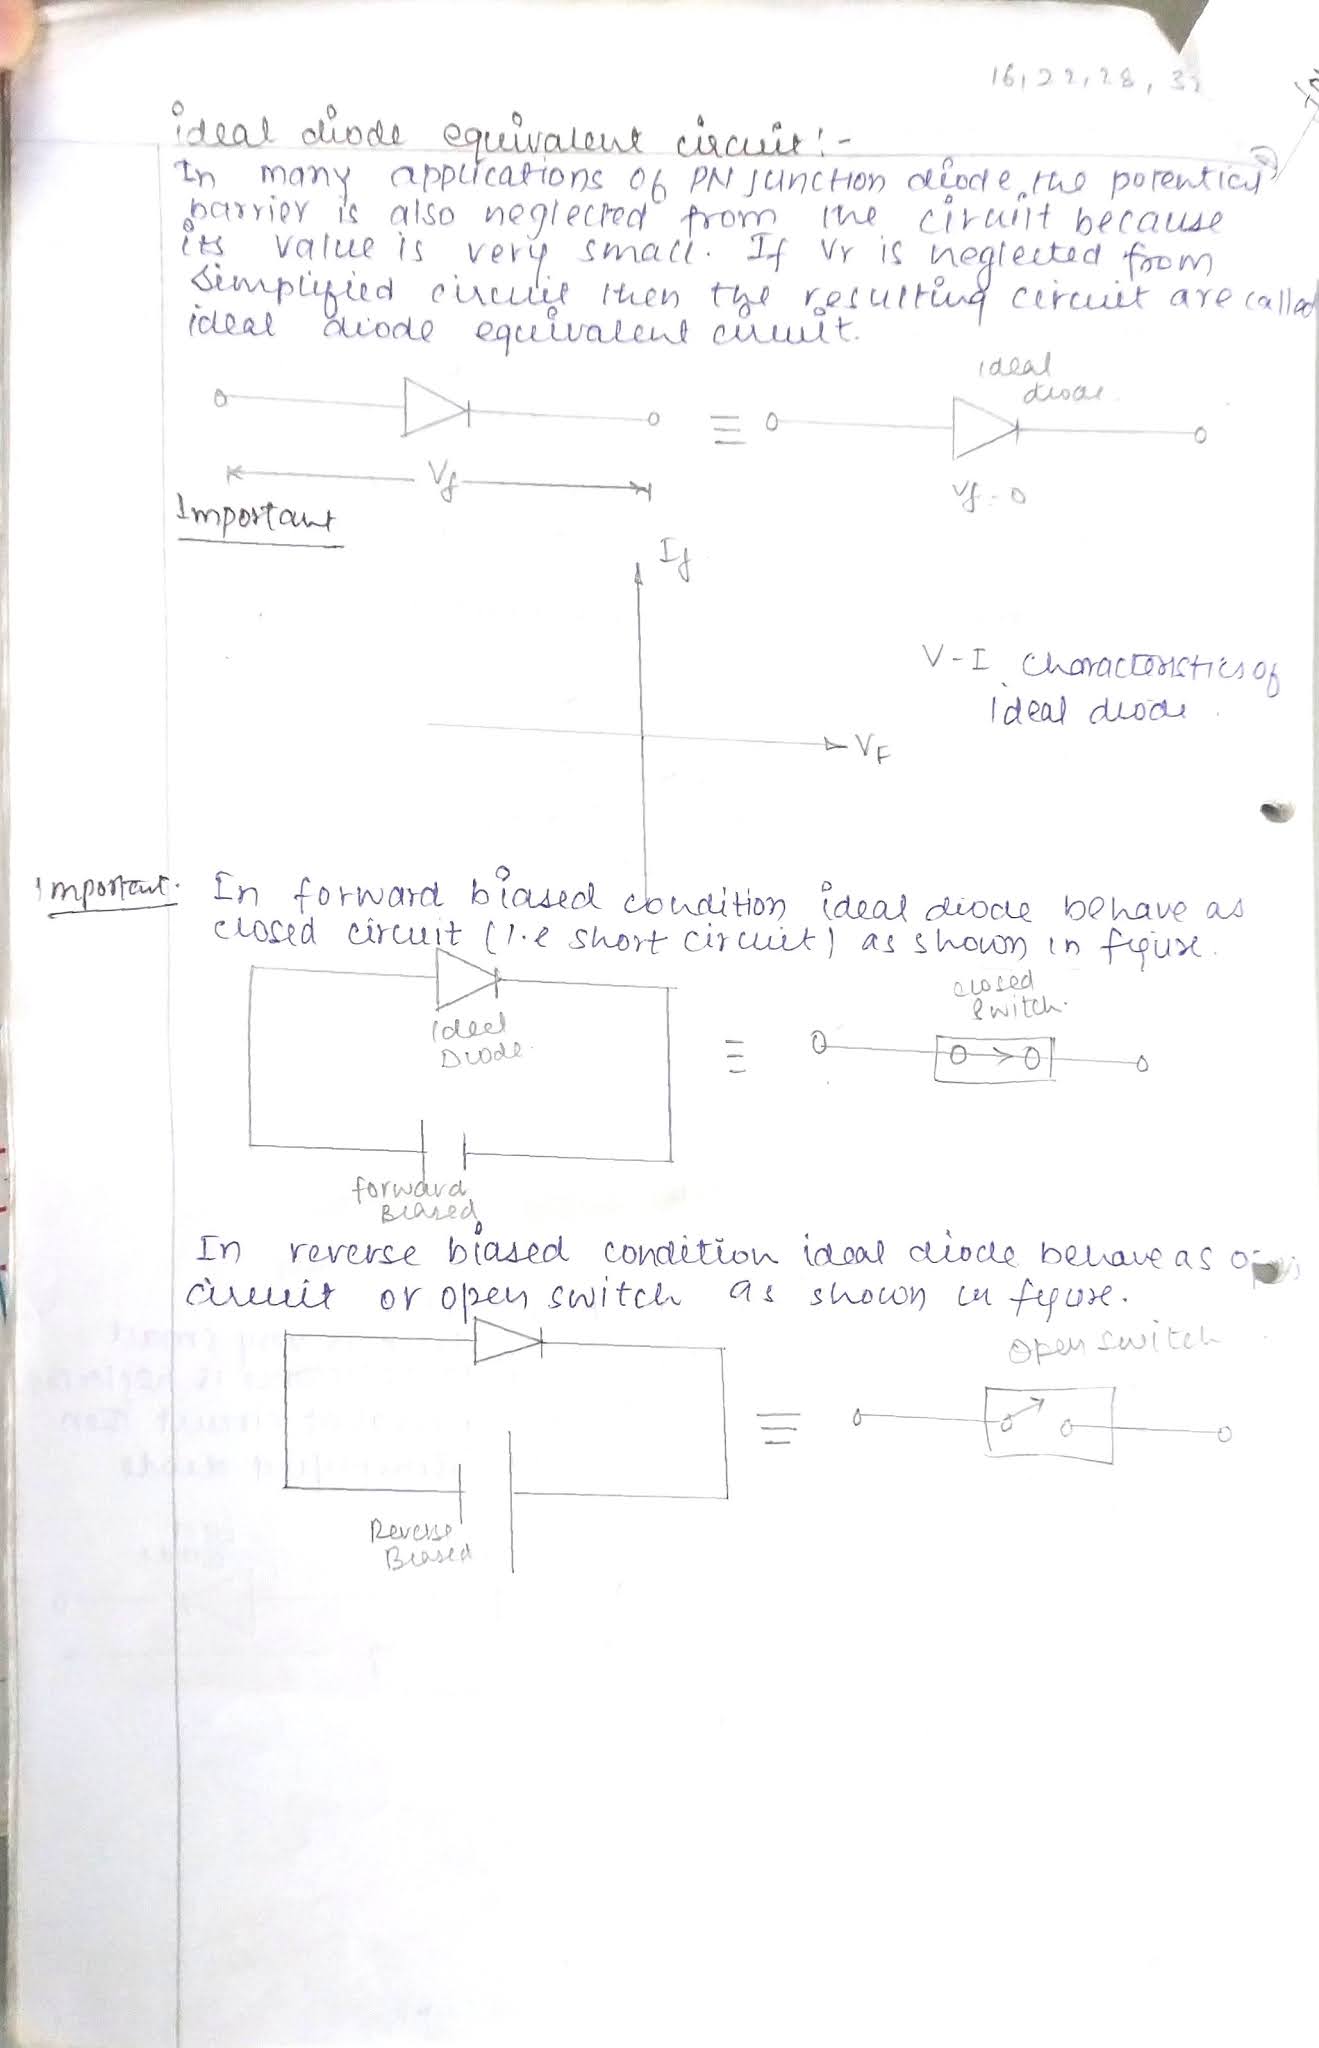 16, 22, 28, 32
ideal diode equivalent circuit:-
In many applications of PN junction diode, the potential
barrier is also neglected from the ciruiit because
its value is very small. If Vr is neglected from
simplified circuit then the resulting circuit are called
ideal diode equivalent circuit.
ideal
diode
Vf
Vf = 0
Important
If
V-I characteristics of
ideal diode.
VF
Important. In forward biased condition ideal diode behave as
closed circuit (i.e short circuit) as shown in figure.
closed
switch.
Ideal
Diode.
forward
Biased
In reverse biased condition ideal diode behave as
circuit or open switch as shown in figure.
open switch
Reverse
Biased